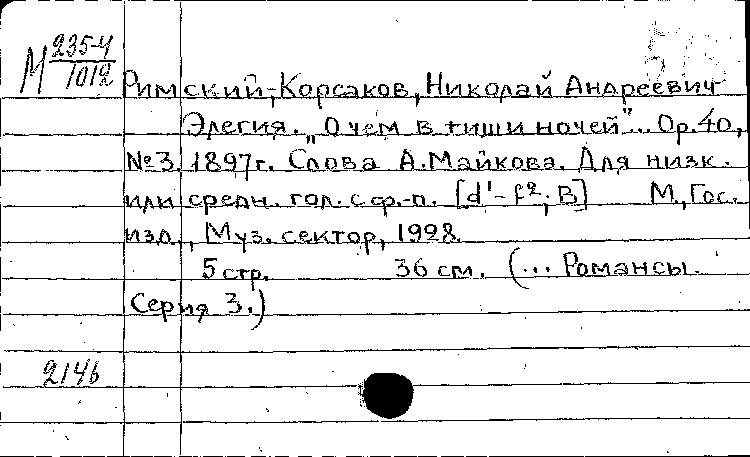 М 235-4
1012
Римский-Корсаков, Николай Андреевич
Элегия. „О чем в тиши ночей"... Ор.40,
№3. 1897г. Слова А.Майкова. Для низк.
или средн. гол. с ф.-п. [d¹-f²; B] М., Гос.
изд., Муз. сектор, 1928.
5 стр. 36 см. (... Романсы.
Серия 3.)
2146